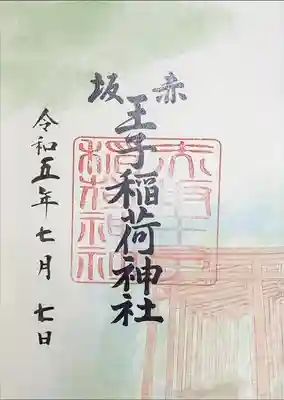 赤坂
王子稲荷神社
令和五年七月七日